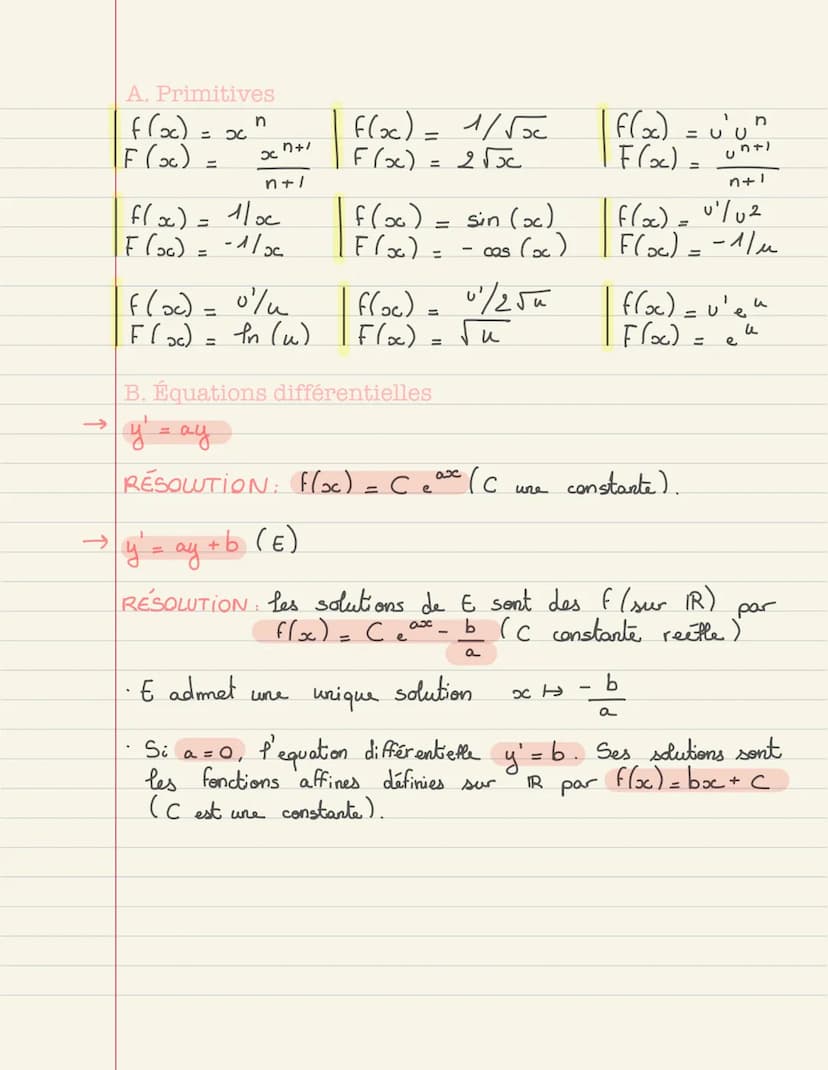 A. Primitives
f(x) = xⁿ
F(x) = xⁿ⁺¹/n+1
f(x) = 1/√x
F(x) = 2√x
f(x) = u'uⁿ
F(x) = uⁿ⁺¹/n+1
f(x) = 1/x
F(x) = -1/x
f(x) = sin(x)
F(x) = - cos(x)
f(x) = u'/u²
F(x) = -1/u
f(x) = u'/u
F(x) = ln(u)
f(x) = u'/2√u
F(x) = √u
f(x) = u'eᵘ
F(x) = eᵘ
B. Équations différentielles
→ y' = ay
RÉSOLUTION: f(x) = C eᵃˣ (C une constante).
→ y' = ay + b (E)
RÉSOLUTION: Les solutions de E sont des f (sur ℝ) par
f(x) = C eᵃˣ - b/a (C constante réelle)
· E admet une unique solution x ↦ - b/a
· Si a = 0, l'equation différentielle y' = b. Ses solutions sont
les fonctions affines définies sur ℝ par f(x) = bx + C
(C est une constante).